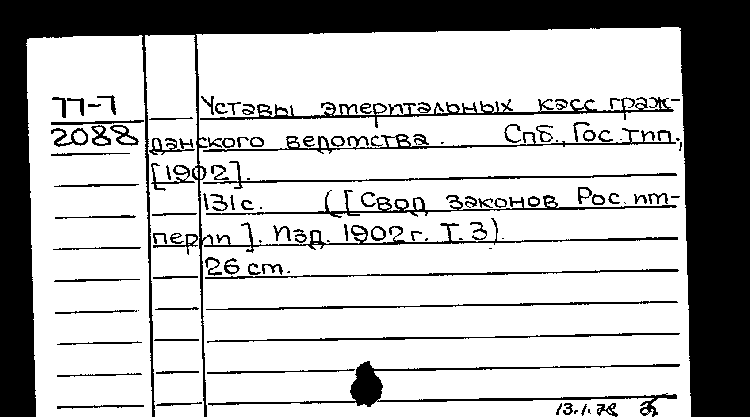 П-7
2088
Уставы эмеритальных касс граж-
данского ведомства. Спб., Гос. тип.,
[1902].
131 с. ([Свод законов Рос. им-
перии]. Изд. 1902 г. Т. 3).
26 см.
13.1.78